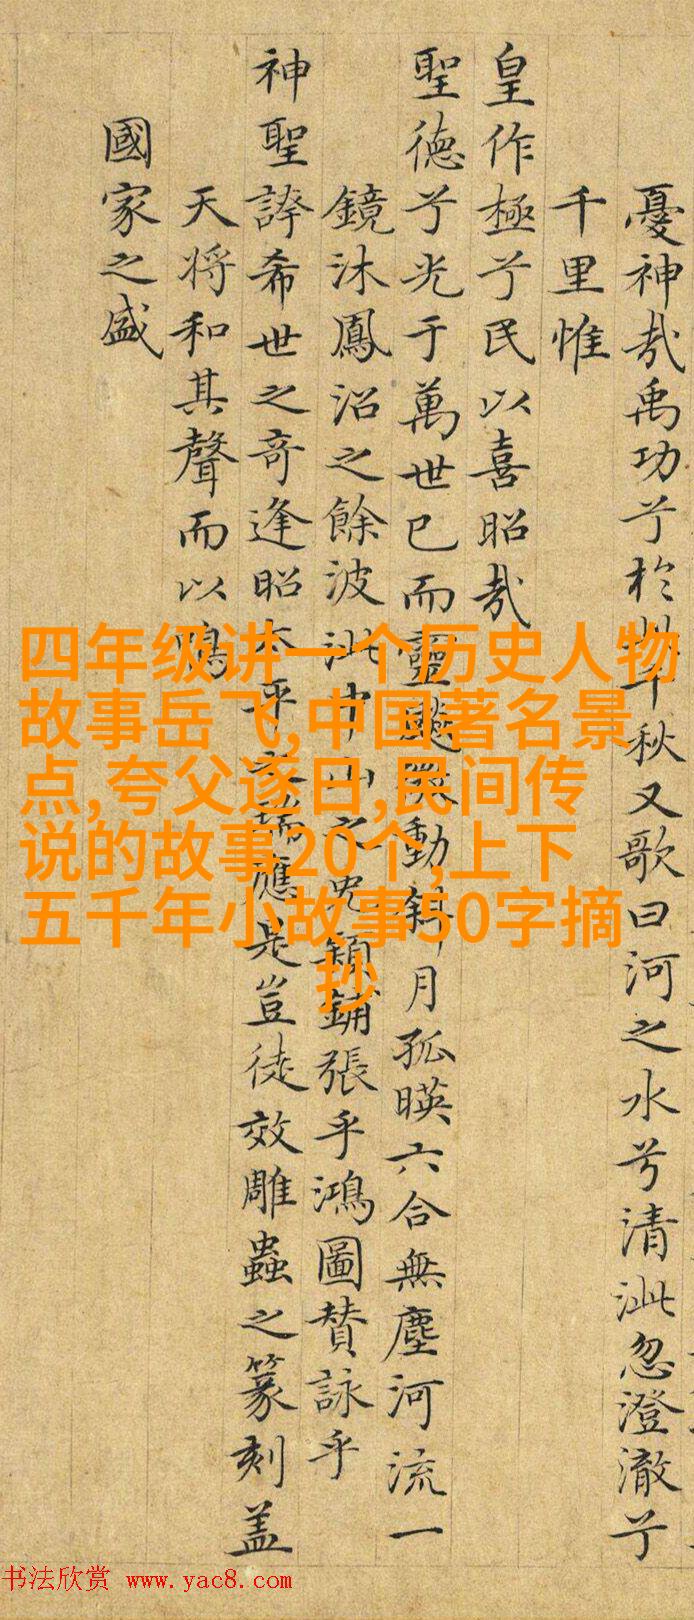 憂神哉禹功兮於斯千秋又歌曰河之水兮清泚忽澄澈兮
千里惟
皇作極兮民以喜昭哉
聖德兮光于萬世已而靈飈微動斜月孤暎六合無塵河流一
鏡沐鳳沼之餘波泚中山之兔穎鋪張乎鴻圖賛詠乎
神聖誇希世之奇逢昭太平之瑞應是豈徒效雕蟲之篆刻盖
天将和其聲而以鳴
國家之盛
四年级讲一个历史人物
故事岳飞,中国著名景
点,夸父逐日,民间传
说的故事20个,上下
五千年小故事50字摘
抄
书法欣赏 www.yac8.com